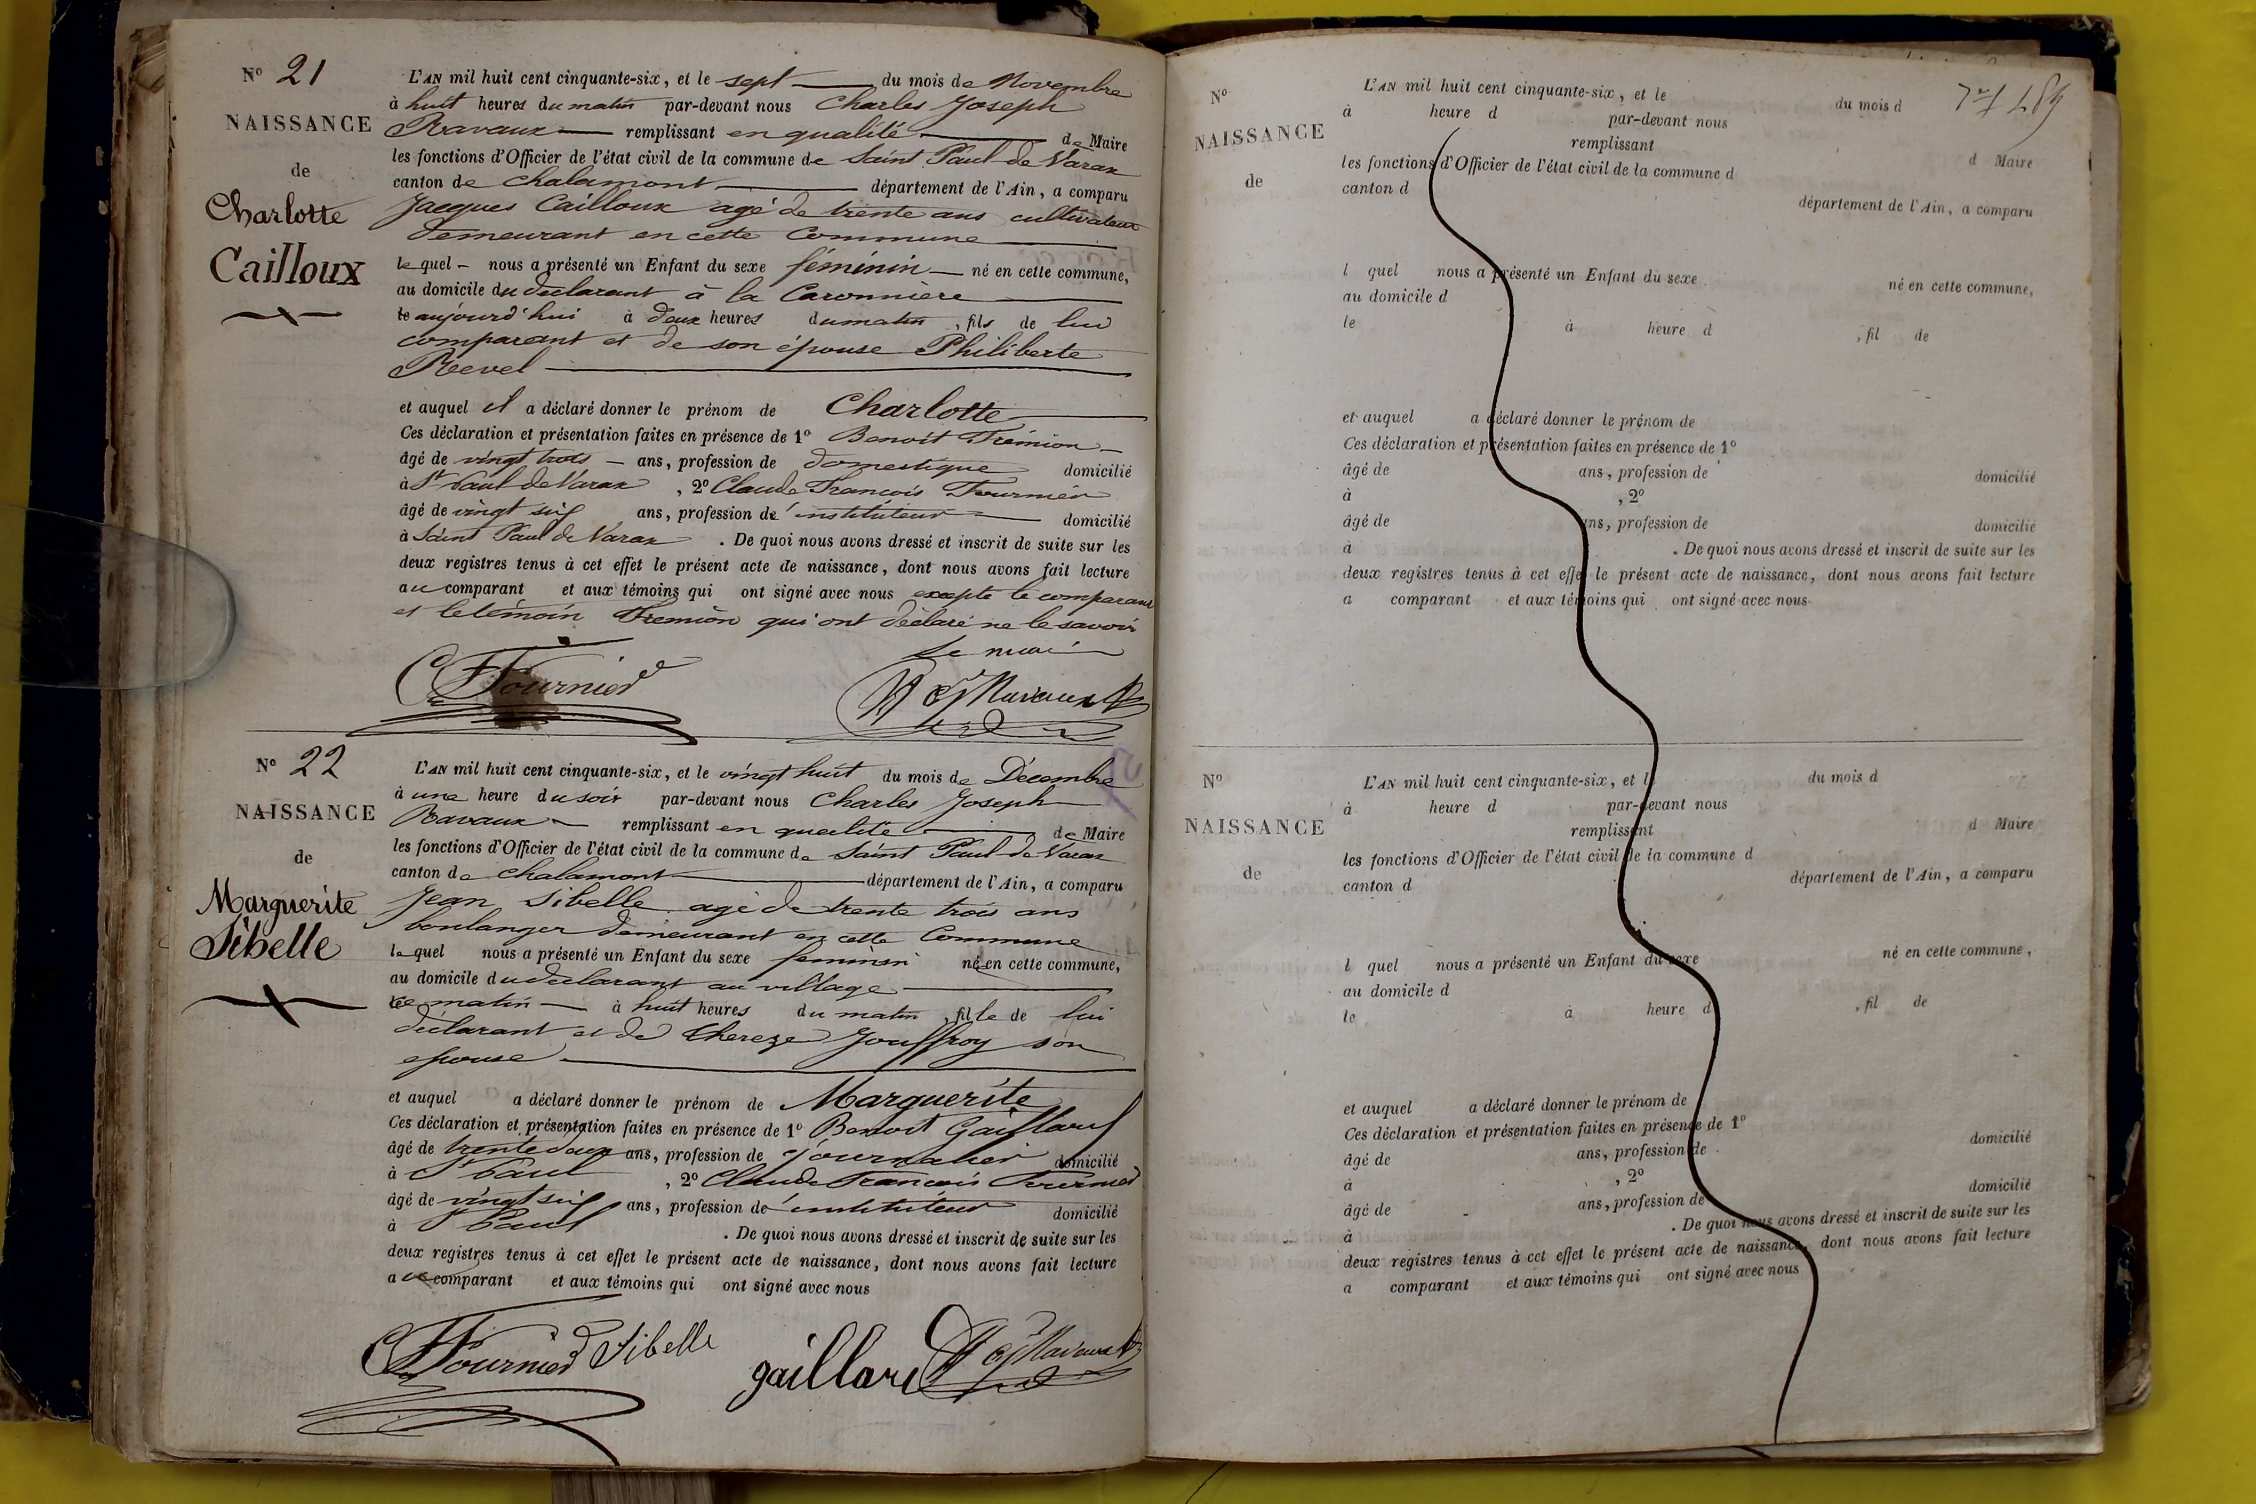 N° 21
NAISSANCE
de
Charlotte
Cailloux
L'AN mil huit cent cinquante-six, et le sept du mois de Novembre
à huit heures du matin par-devant nous Charles Joseph
Ravaux remplissant en qualité de Maire
les fonctions d'Officier de l'état civil de la commune de Saint Paul de Varax
canton de Chalamont département de l'Ain, a comparu
Jacques Cailloux agé de trente ans cultivateur
demeurant en cette Commune
lequel nous a présenté un Enfant du sexe féminin né en cette commune,
au domicile du déclarant à la Caronnière
aujourd'hui à deux heures du matin, fils de lui
comparant et de son épouse Philiberte
Revel
et auquel il a déclaré donner le prénom de Charlotte
Ces déclaration et présentation faites en présence de 1° Benoit Frémion
âgé de vingt trois ans, profession de domestique domicilié
à St Paul de Varax, 2° Claude François Fournier
âgé de vingt six ans, profession de instituteur domicilié
à Saint Paul de Varax. De quoi nous avons dressé et inscrit de suite sur les
deux registres tenus à cet effet le présent acte de naissance, dont nous avons fait lecture
au comparant et aux témoins qui ont signé avec nous excepté le comparant
et le témoin Fremion qui ont déclaré ne le savoir
Le maire
CF Fournier
Ravaux
N° 22
NAISSANCE
de
Marguerite
Sibelle
L'AN mil huit cent cinquante-six, et le vingt huit du mois de Décembre
à une heure du soir par-devant nous Charles Joseph
Ravaux remplissant en qualité de Maire
les fonctions d'Officier de l'état civil de la commune de Saint Paul de Varax
canton de Chalamont département de l'Ain, a comparu
Jean Sibelle agé de trente trois ans
boulanger demeurant en cette Commune
lequel nous a présenté un Enfant du sexe feminin né en cette commune,
au domicile du declarant au village
ce matin à huit heures du matin, fille de lui
déclarant et de Thereze Jouffroy son
epouse
et auquel a déclaré donner le prénom de Marguerite
Ces déclaration et présentation faites en présence de 1° Benoit Gaillard
âgé de trente deux ans, profession de journalier domicilié
à St Paul, 2° Claude François Fournier
âgé de vingt six ans, profession de instituteur domicilié
à St Paul. De quoi nous avons dressé et inscrit de suite sur les
deux registres tenus à cet effet le présent acte de naissance, dont nous avons fait lecture
au comparant et aux témoins qui ont signé avec nous
CF Fournier Sibelle gaillard Ravaux
N°
NAISSANCE
de
L'AN mil huit cent cinquante-six, et le du mois d
à heure d par-devant nous
remplissant d Maire
les fonctions d'Officier de l'état civil de la commune d
canton d département de l'Ain, a comparu
l quel nous a présenté un Enfant du sexe né en cette commune,
au domicile d
le à heure d , fil de
et auquel a déclaré donner le prénom de
Ces déclaration et présentation faites en présence de 1°
âgé de ans, profession de domicilié
à , 2°
âgé de ans, profession de domicilié
à . De quoi nous avons dressé et inscrit de suite sur les
deux registres tenus à cet effet le présent acte de naissance, dont nous avons fait lecture
a comparant et aux témoins qui ont signé avec nous
N°
NAISSANCE
de
L'AN mil huit cent cinquante-six, et l du mois d
à heure d par-devant nous
remplissant d Maire
les fonctions d'Officier de l'état civil de la commune d
canton d département de l'Ain, a comparu
l quel nous a présenté un Enfant du sexe né en cette commune,
au domicile d
le à heure d , fil de
et auquel a déclaré donner le prénom de
Ces déclaration et présentation faites en présence de 1°
âgé de ans, profession de domicilié
à , 2°
âgé de ans, profession de domicilié
à . De quoi nous avons dressé et inscrit de suite sur les
deux registres tenus à cet effet le présent acte de naissance, dont nous avons fait lecture
a comparant et aux témoins qui ont signé avec nous